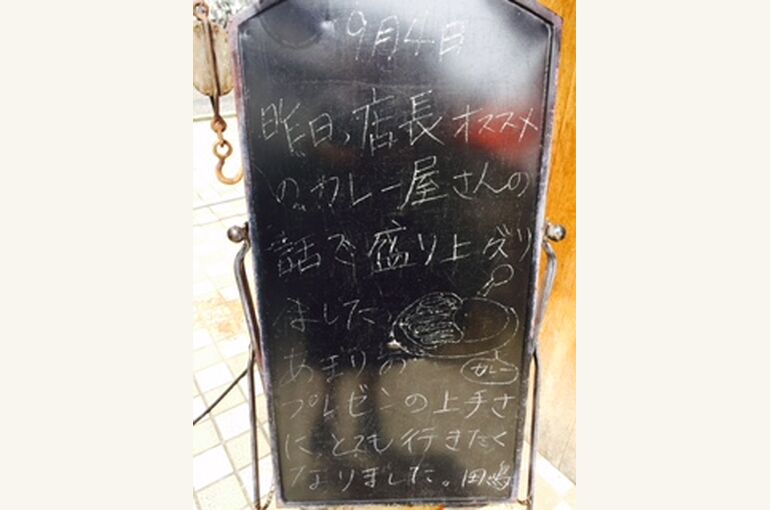 9月4日
昨日、店長オススメ
のカレー屋さんの
話で盛り上がり
ました。
カレー
あまりの
プレゼンの上手さ
に、とても行きたく
なりました。田嶋